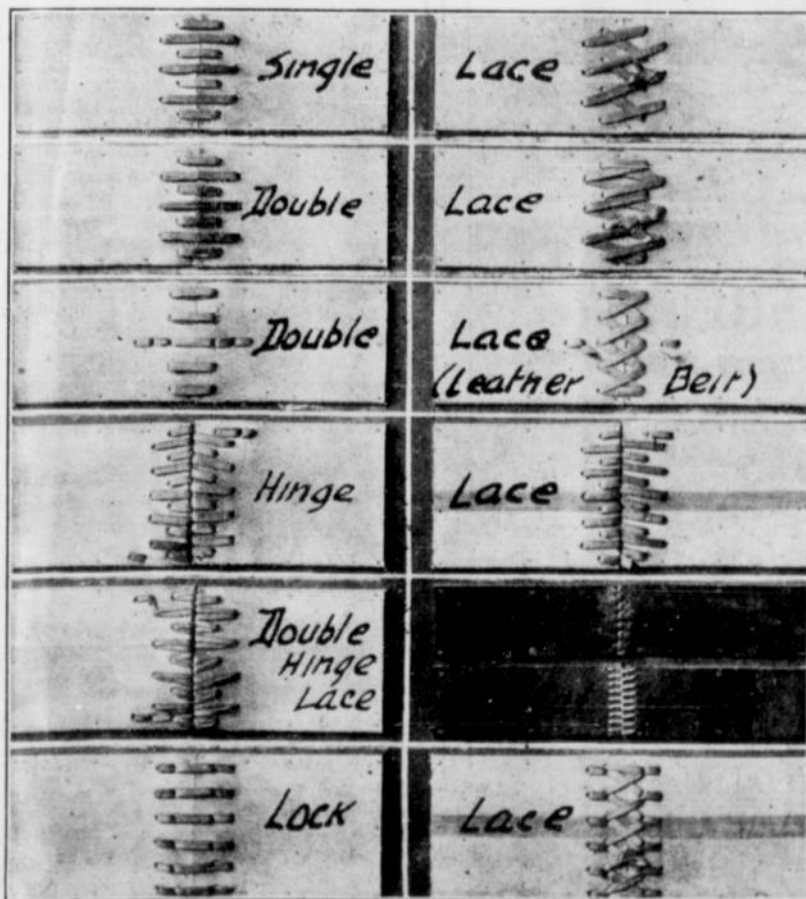 Single Lace
Double Lace
Double Lace
(Leather Belt)
Hinge Lace
Double
Hinge
Lace
Lock Lace